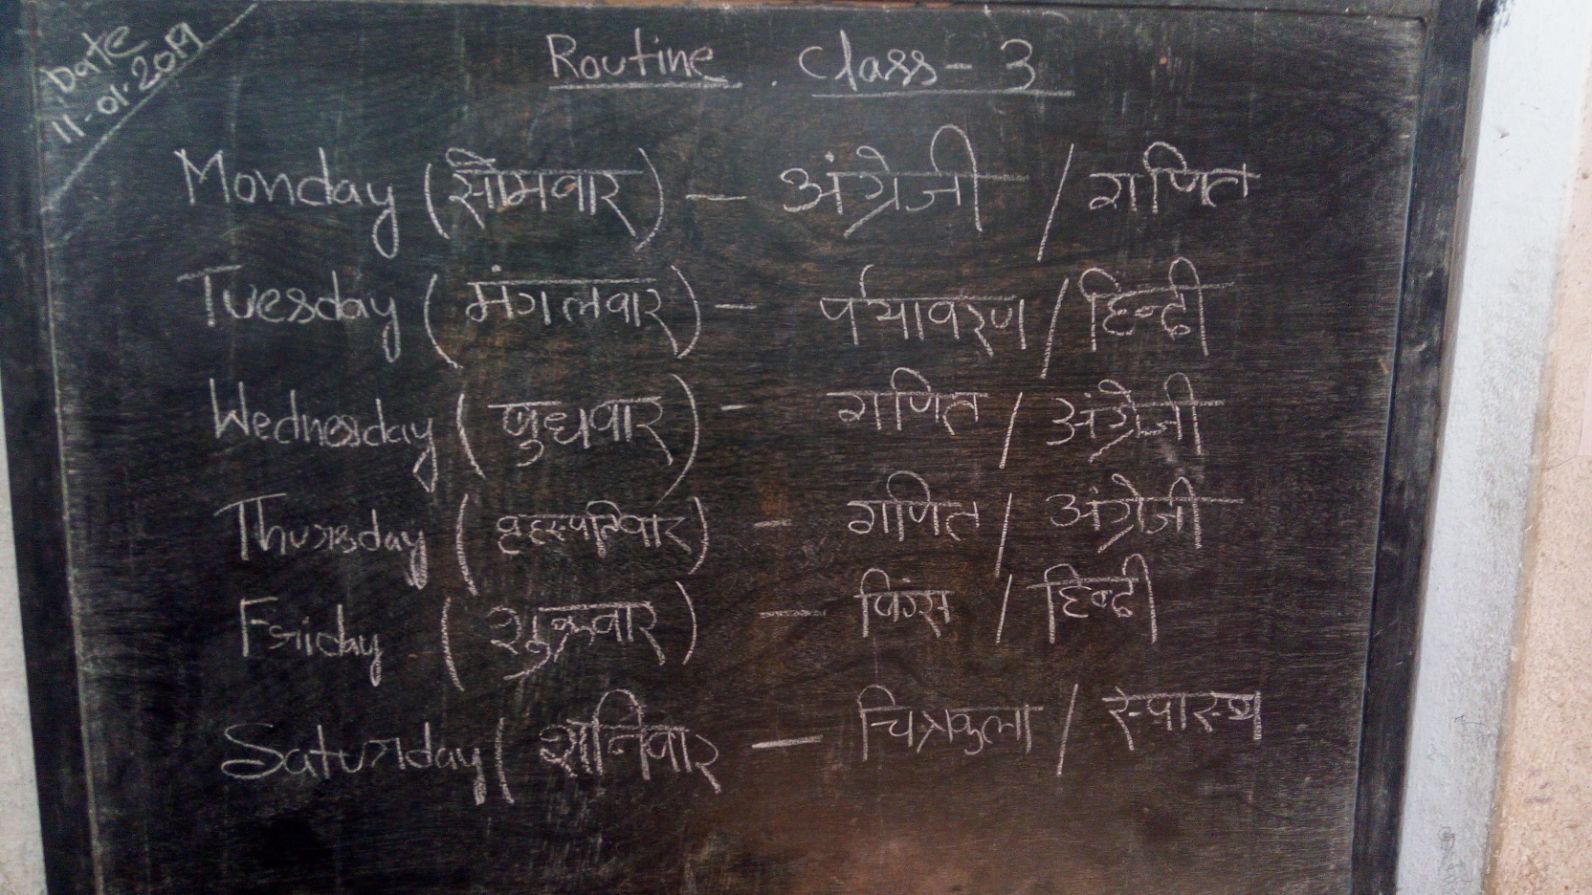 Date
11-01-2019
Routine . Class - 3
Monday (सोमवार) - अंग्रेजी / गणित
Tuesday (मंगलवार) - पर्यावरण / हिन्दी
Wednesday (बुधवार) - गणित / अंग्रेजी
Thursday (बृहस्पतिवार) - गणित / अंग्रेजी
Friday (शुक्रवार) - / हिन्दी
Saturday (शनिवार) - चित्रकला / स्वास्थ